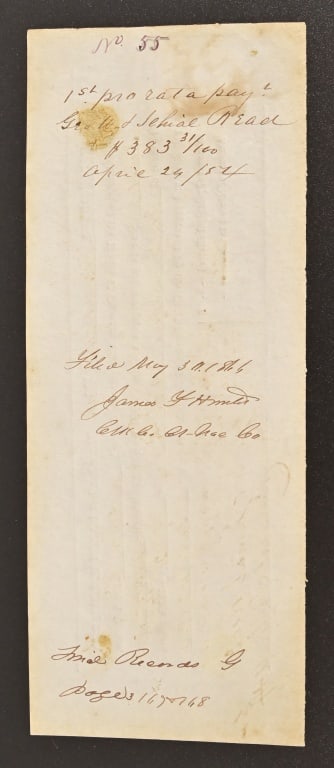 No. 55
1st pro rata payt
Geo. W. & Read
$383 31/100
April 24/54
Filed May 30. 1866
James F Hunter
Clk Co. Ct. Nac Co
Final Records G
Pages 167&168